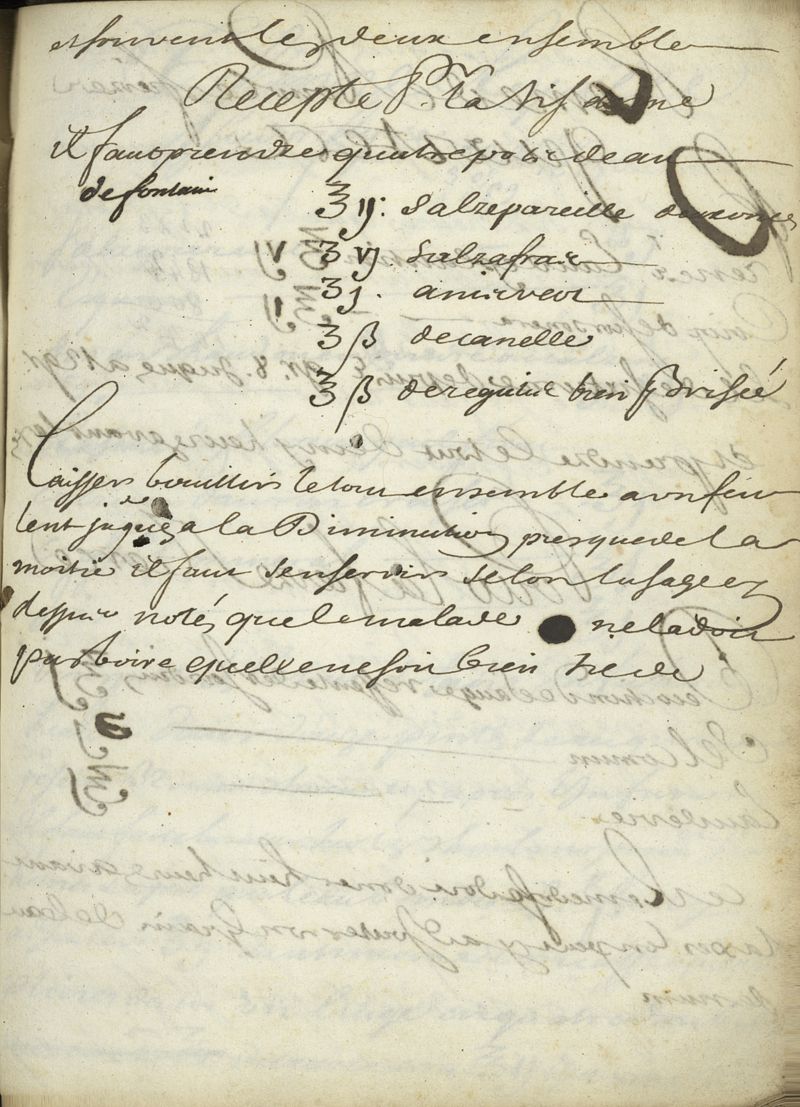 et souvent les deux ensemble
Recepte Pr. la tisdonne
il faut prendre quatre pots deau
de fontain
℥ ij: salzepareille deux onces
℥ vj salzafras
℥ j. anis vert
℥ ß de canelle
℥ ß de regulice bien Brisée
Laisser bouillir le tout ensemble a un feu
lent jusques a la Diminution presque de la
moitié il faut sen servir selon lusage cy
dessus notés que le malade ne la doit
pas boire quelle ne soit bien tiede